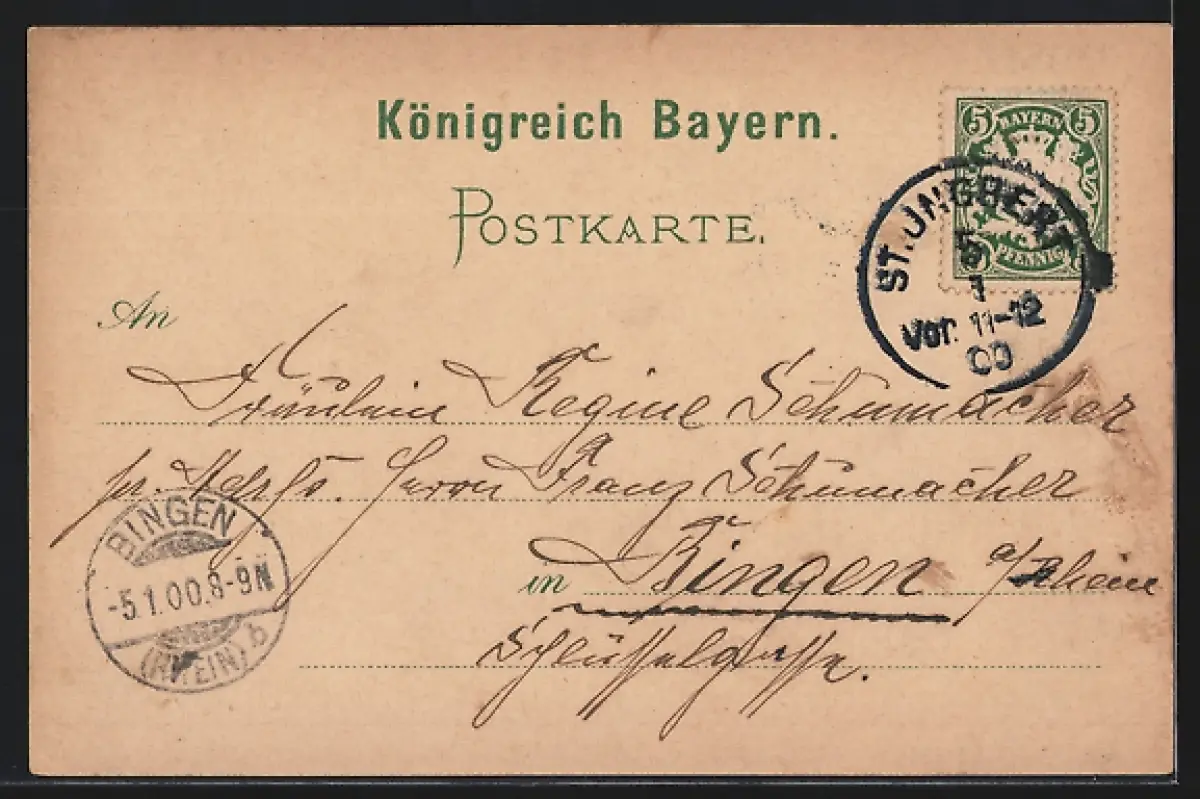 Königreich Bayern.
POSTKARTE.
5 BAYERN 5
PFENNIG
ST. INGBERT
5
1
Vor. 11-12
00
An
Fräulein Regine Schumacher
pr. Herrn Franz Schumacher
in Bingen a/Rhein
Schlüsselgasse.
BINGEN
-5.1.00.8-9N
(RHEIN) b